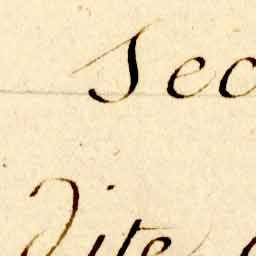 Sec
Dite